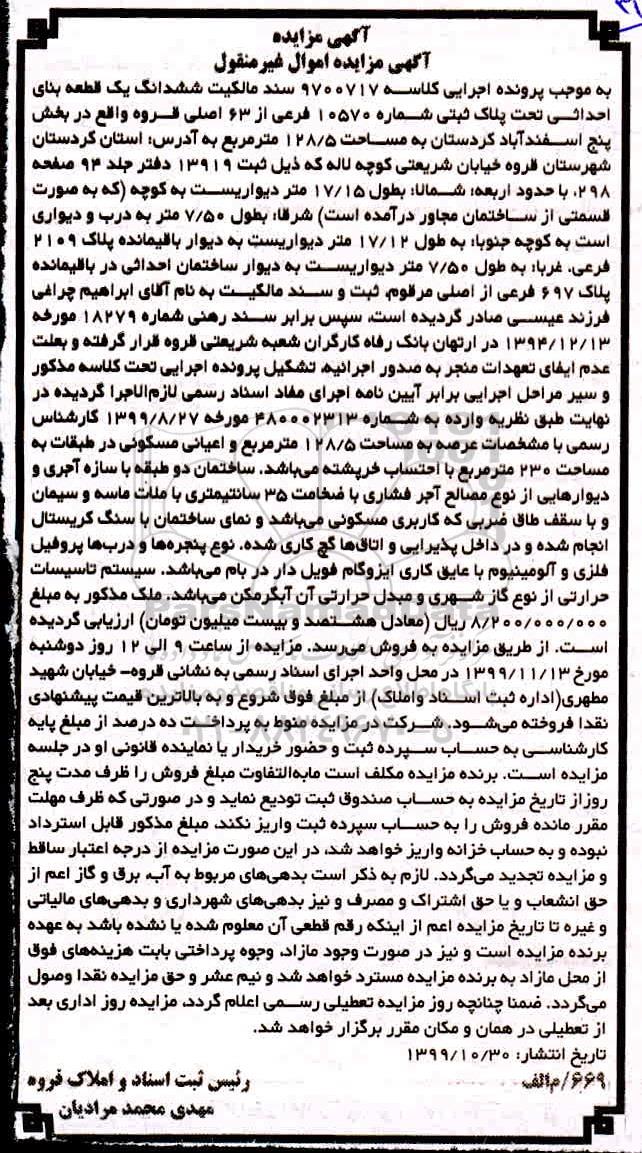 آگهی مزایده
آگهی مزایده اموال غیرمنقول
به موجب پرونده اجرایی کلاسه ۹۷۰۰۷۱۷ سند مالکیت ششدانگ یک قطعه بنای
احداثی تحت پلاک ثبتی شماره ۱۰۵۷۰ فرعی از ۶۳ اصلی قروه واقع در بخش
پنج اسفندآباد کردستان به مساحت ۱۲۸/۵ مترمربع به آدرس: استان کردستان
شهرستان قروه خیابان شریعتی کوچه لاله که ذیل ثبت ۱۳۹۱۹ دفتر جلد ۹۴ صفحه
۲۹۸، با حدود اربعه: شمالا: بطول ۱۷/۱۵ متر دیواریست به کوچه (که به صورت
قسمتی از ساختمان مجاور درآمده است) شرقا: بطول ۷/۵۰ متر به درب و دیواری
است به کوچه جنوبا: به طول ۱۷/۱۲ متر دیواریست به دیوار باقیمانده پلاک ۲۱۰۹
فرعی. غربا: به طول ۷/۵۰ متر دیواریست به دیوار ساختمان احداثی در باقیمانده
پلاک ۶۹۷ فرعی از اصلی مرقوم، ثبت و سند مالکیت به نام آقای ابراهیم چراغی
فرزند عیسی صادر گردیده است، سپس برابر سند رهنی شماره ۱۸۲۷۹ مورخه
۱۳۹۴/۱۲/۱۳ در ارتهان بانک رفاه کارگران شعبه شریعتی قروه قرار گرفته و بعلت
عدم ایفای تعهدات منجر به صدور اجرائیه، تشکیل پرونده اجرایی تحت کلاسه مذکور
و سیر مراحل اجرایی برابر آیین نامه اجرای مفاد اسناد رسمی لازم‌الاجرا گردیده در
نهایت طبق نظریه وارده به شماره ۴۸۰۰۰۲۳۱۳ مورخه ۱۳۹۹/۸/۲۷ کارشناس
رسمی با مشخصات عرصه به مساحت ۱۲۸/۵ مترمربع و اعیانی مسکونی در طبقات به
مساحت ۲۳۰ مترمربع با احتساب خرپشته می‌باشد. ساختمان دو طبقه با سازه آجری و
دیوارهایی از نوع مصالح آجر فشاری با ضخامت ۳۵ سانتیمتری با ملات ماسه و سیمان
و با سقف طاق ضربی که کاربری مسکونی می‌باشد و نمای ساختمان با سنگ کریستال
انجام شده و در داخل پذیرایی و اتاق‌ها گچ کاری شده. نوع پنجره‌ها و درب‌ها پروفیل
فلزی و آلومینیوم با عایق کاری ایزوگام فویل دار در بام می‌باشد. سیستم تاسیسات
حرارتی از نوع گاز شهری و مبدل حرارتی آن آبگرمکن می‌باشد. ملک مذکور به مبلغ
۸/۲۰۰/۰۰۰/۰۰۰ ریال (معادل هشتصد و بیست میلیون تومان) ارزیابی گردیده
است. از طریق مزایده به فروش می‌رسد. مزایده از ساعت ۹ الی ۱۲ روز دوشنبه
مورخ ۱۳۹۹/۱۱/۱۳ در محل واحد اجرای اسناد رسمی به نشانی قروه- خیابان شهید
مطهری(اداره ثبت اسناد واملاک) از مبلغ فوق شروع و به بالاترین قیمت پیشنهادی
نقدا فروخته می‌شود. شرکت در مزایده منوط به پرداخت ده درصد از مبلغ پایه
کارشناسی به حساب سپرده ثبت و حضور خریدار یا نماینده قانونی او در جلسه
مزایده است. برنده مزایده مکلف است مابه‌التفاوت مبلغ فروش را ظرف مدت پنج
روزاز تاریخ مزایده به حساب صندوق ثبت تودیع نماید و در صورتی که ظرف مهلت
مقرر مانده فروش را به حساب سپرده ثبت واریز نکند، مبلغ مذکور قابل استرداد
نبوده و به حساب خزانه واریز خواهد شد، در این صورت مزایده از درجه اعتبار ساقط
و مزایده تجدید می‌گردد. لازم به ذکر است بدهی‌های مربوط به آب، برق و گاز اعم از
حق انشعاب و یا حق اشتراک و مصرف و نیز بدهی‌های شهرداری و بدهی‌های مالیاتی
و غیره تا تاریخ مزایده اعم از اینکه رقم قطعی آن معلوم شده یا نشده باشد به عهده
برنده مزایده است و نیز در صورت وجود مازاد، وجوه پرداختی بابت هزینه‌های فوق
از محل مازاد به برنده مزایده مسترد خواهد شد و نیم عشر و حق مزایده نقدا وصول
می‌گردد. ضمنا چنانچه روز مزایده تعطیلی رسمی اعلام گردد، مزایده روز اداری بعد
از تعطیلی در همان و مکان مقرر برگزار خواهد شد.
تاریخ انتشار: ۱۳۹۹/۱۰/۳۰
۶۶۹/م‌الف
رئیس ثبت اسناد و املاک قروه
مهدی محمد مرادیان